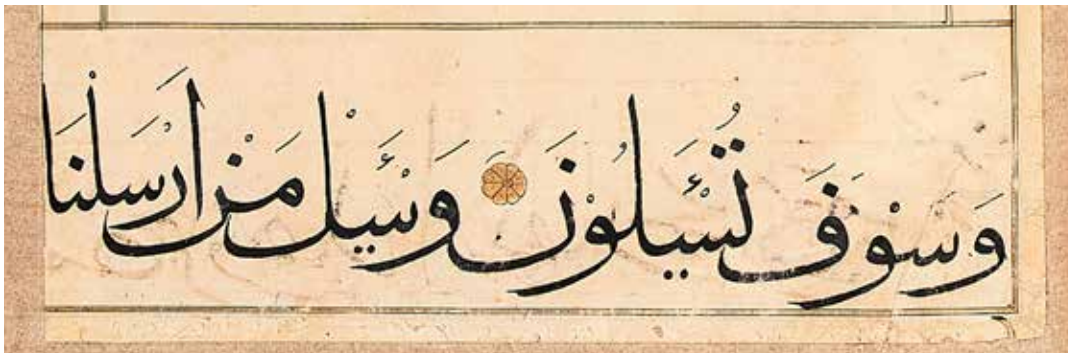 وَسَوْفَ تُسْئَلُوْنَ وَسْئَلْ مَنْ اَرْسَلْنَا